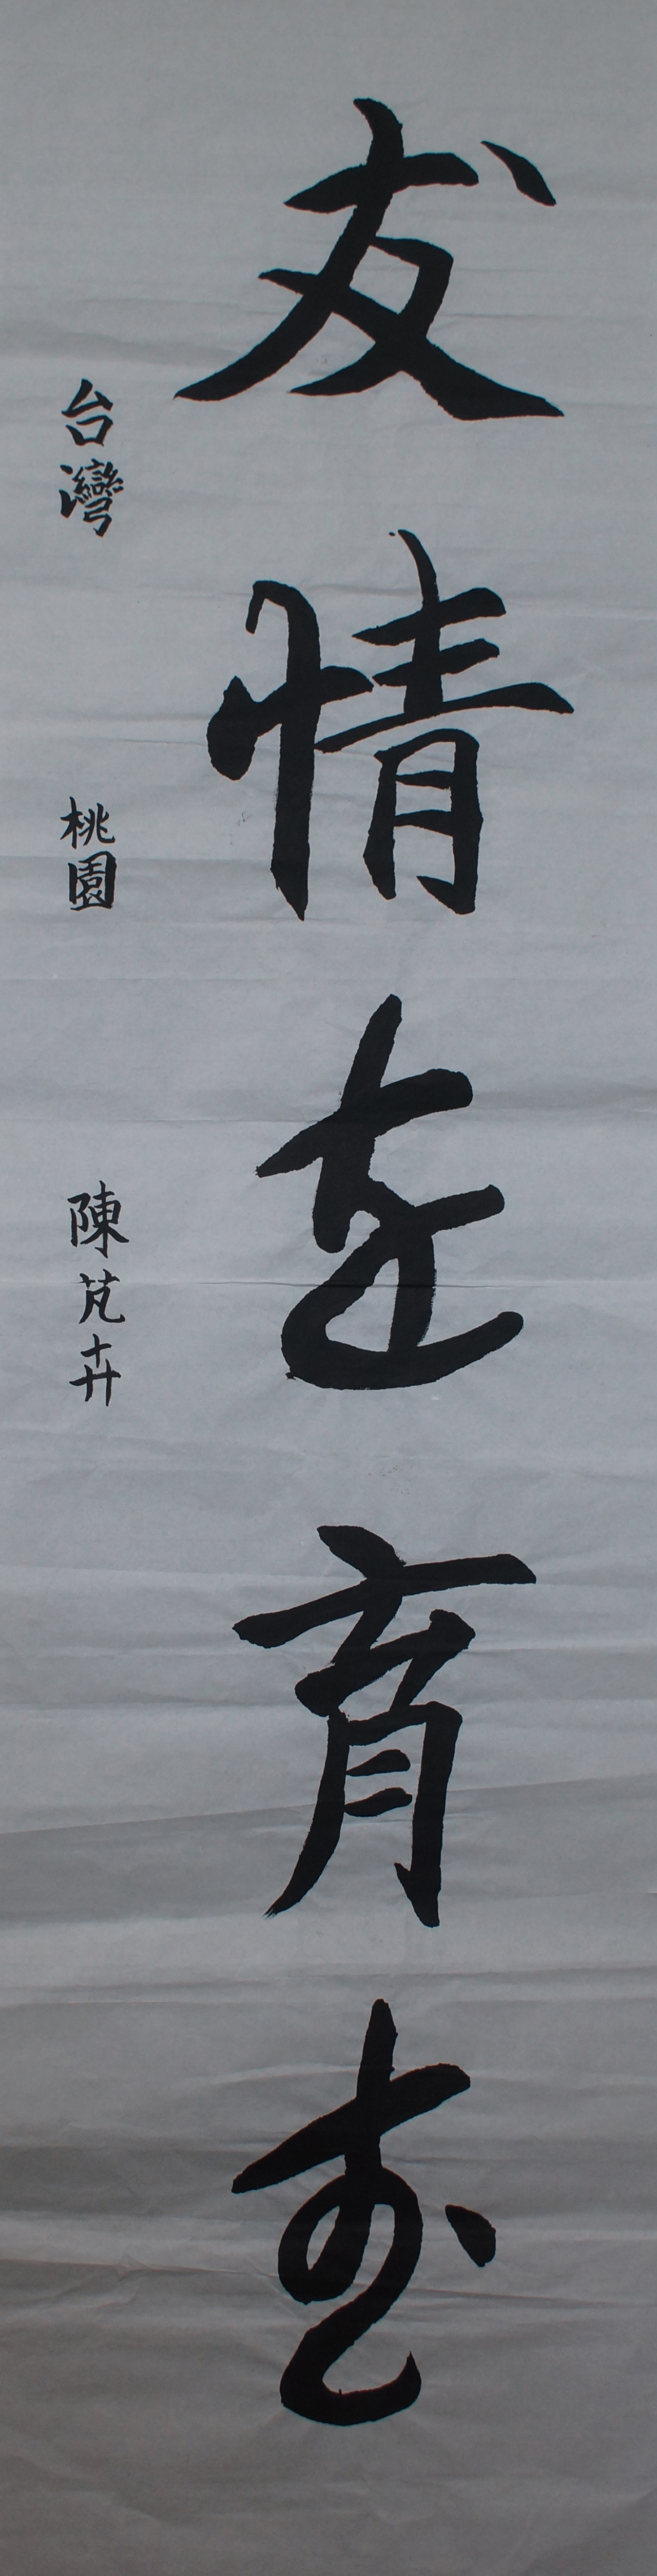 友情を育む
台灣 桃園 陳芃卉